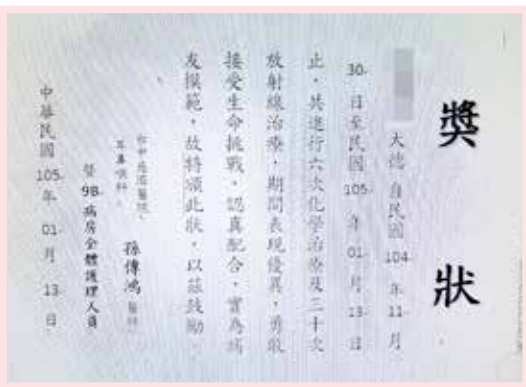 獎狀
大德 自民國 104 年 11 月
30 日至民國 105 年 01 月 13 日
止,共進行六次化學治療及三十次
放射線治療,期間表現優異,勇敢
接受生命挑戰,認真配合,實為病
友模範,故特頒此狀,以茲鼓勵。
台中慈濟醫院
耳鼻喉科 孫傳鴻 醫師
暨 98 病房全體護理人員
中華民國 105 年 01 月 13 日